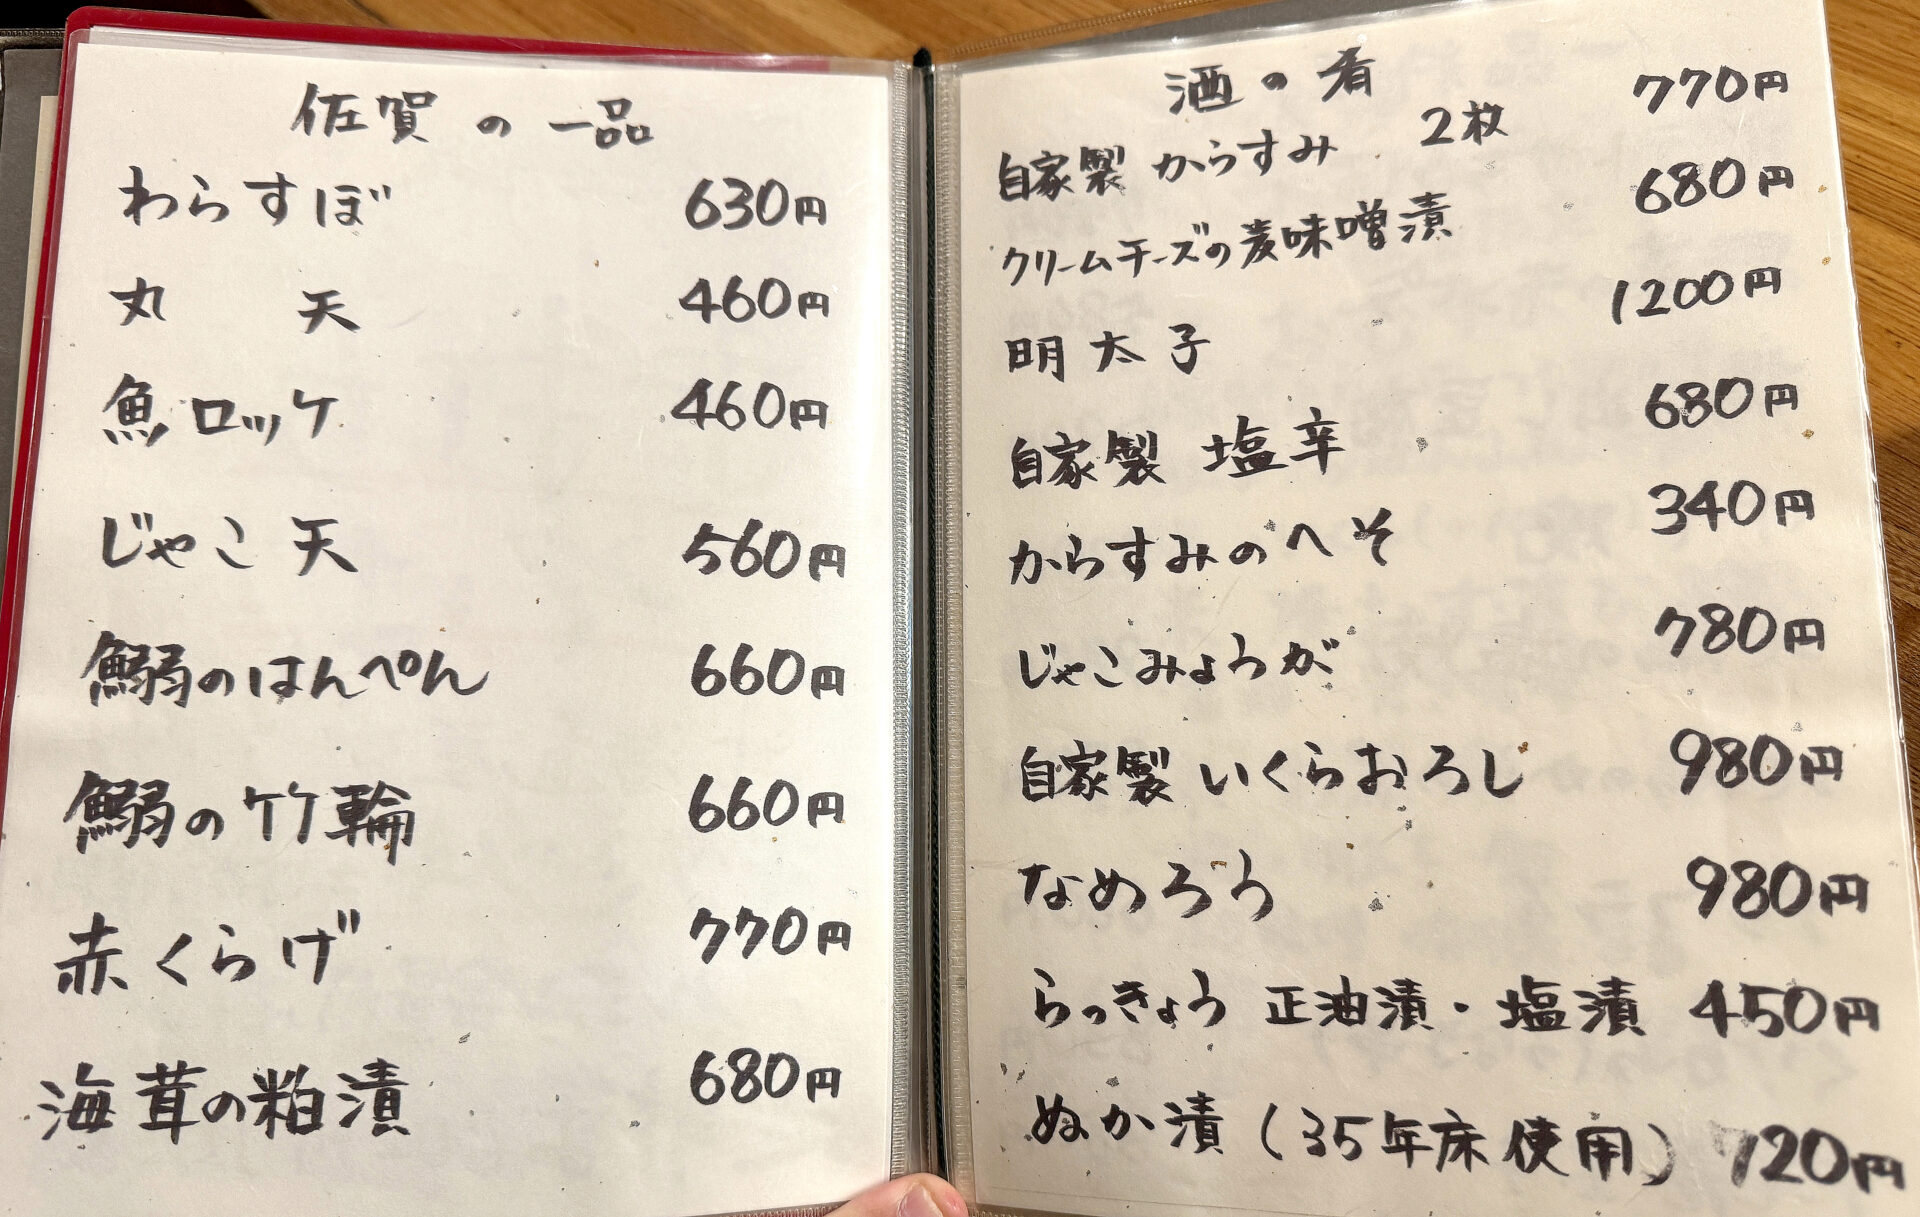 佐賀の一品
わらすぼ 630円
丸天 460円
魚ロッケ 460円
じゃこ天 560円
鰯のはんぺん 660円
鰯の竹輪 660円
赤くらげ 770円
海茸の粕漬 680円
酒の肴
自家製からすみ 2枚 770円
クリームチーズの麦味噌漬 680円
明太子 1200円
自家製塩辛 680円
からすみのへそ 340円
じゃこみょうが 780円
自家製いくらおろし 980円
なめろう 980円
らっきょう 正油漬・塩漬 450円
ぬか漬(35年床使用) 720円